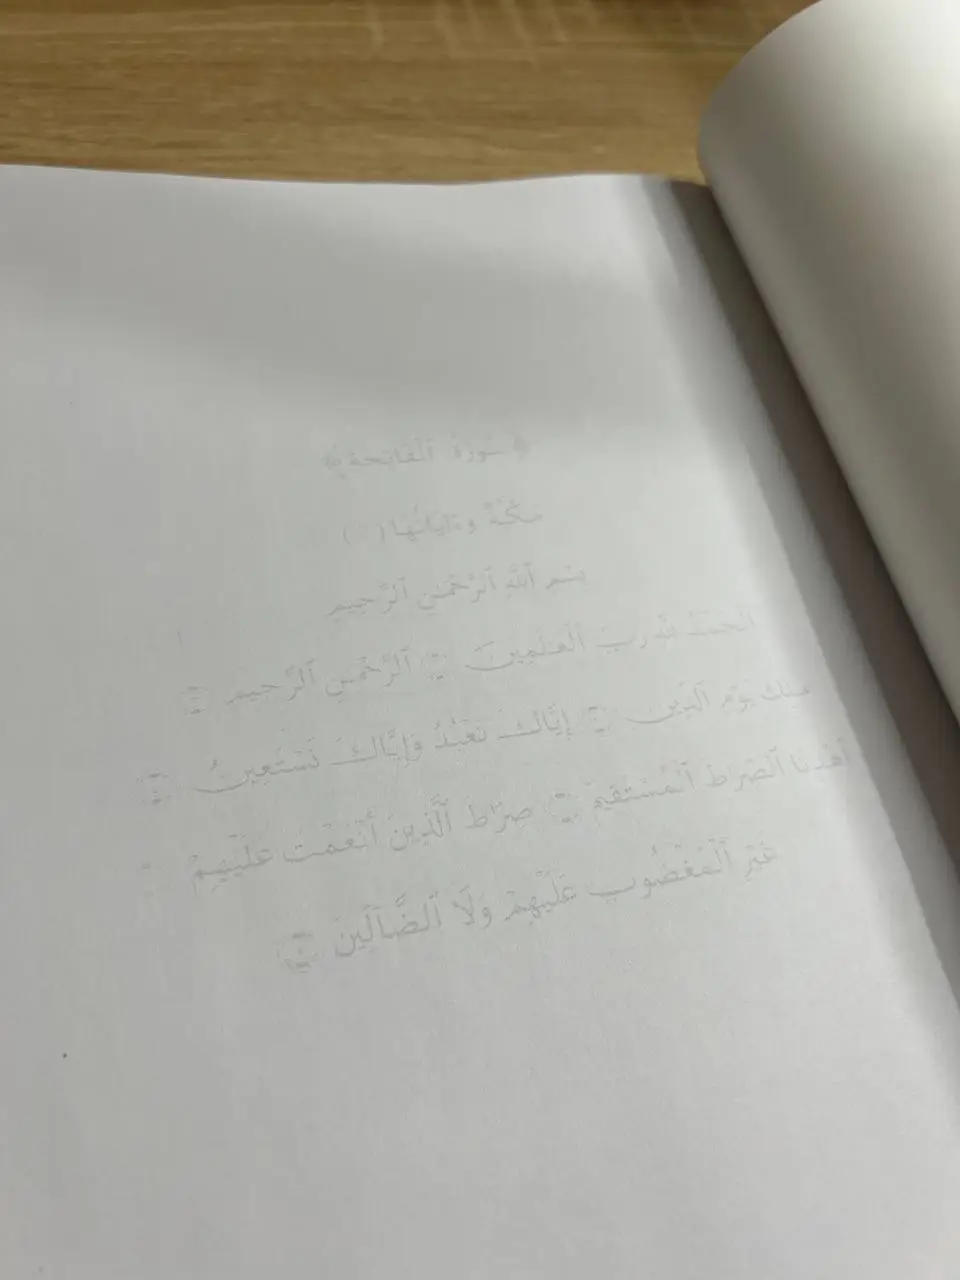 ﴿سُورَةُ ٱلْفَاتِحَةِ﴾
مَكِّيَّةٌ وَءَايَاتُهَا ( )
بِسْمِ ٱللَّهِ ٱلرَّحْمَٰنِ ٱلرَّحِيمِ
ٱلْحَمْدُ لِلَّهِ رَبِّ ٱلْعَٰلَمِينَ ٱلرَّحْمَٰنِ ٱلرَّحِيمِ
مَٰلِكِ يَوْمِ ٱلدِّينِ إِيَّاكَ نَعْبُدُ وَإِيَّاكَ نَسْتَعِينُ
ٱهْدِنَا ٱلصِّرَاطَ ٱلْمُسْتَقِيمَ صِرَاطَ ٱلَّذِينَ أَنْعَمْتَ عَلَيْهِمْ
غَيْرِ ٱلْمَغْضُوبِ عَلَيْهِمْ وَلَا ٱلضَّآلِّينَ